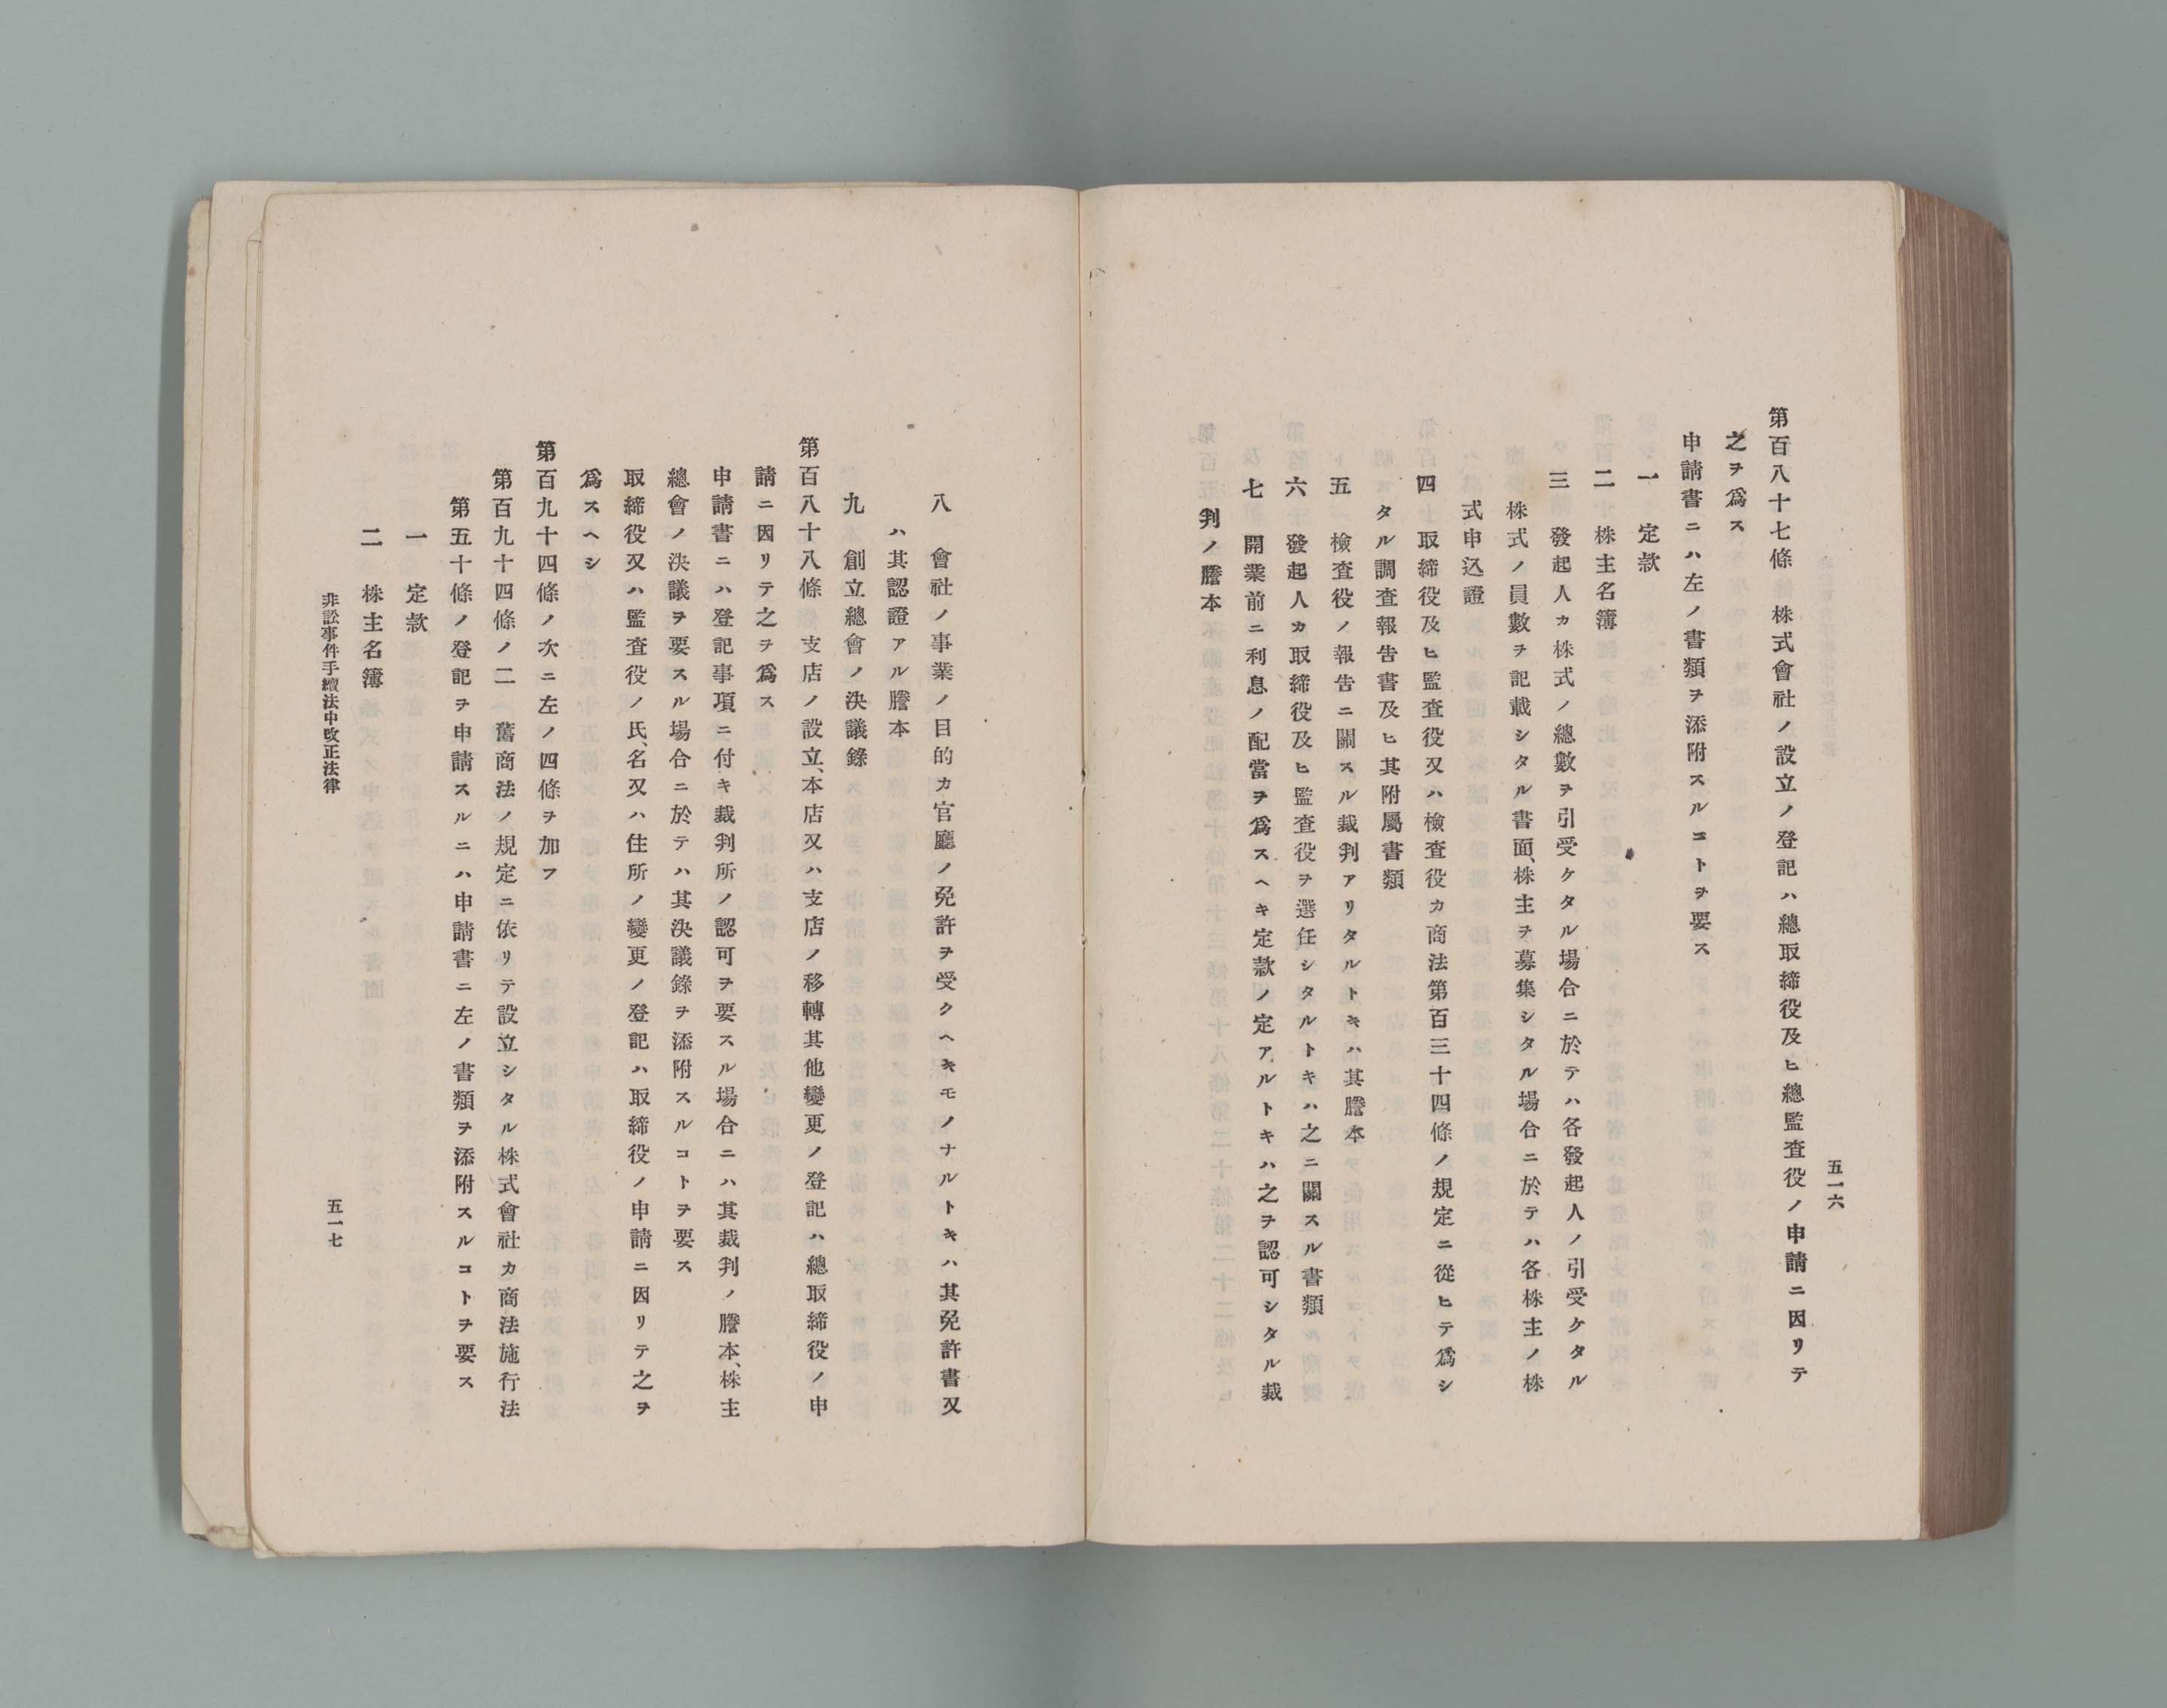 五一六
第百八十七條 株式會社ノ設立ノ登記ハ總取締役及ヒ總監査役ノ申請ニ因リテ
之ヲ爲ス
申請書ニハ左ノ書類ヲ添附スルコトヲ要ス
一 定款
二 株主名簿
三 發起人カ株式ノ總數ヲ引受ケタル場合ニ於テハ各發起人ノ引受ケタル
株式ノ員數ヲ記載シタル書面、株主ヲ募集シタル場合ニ於テハ各株主ノ株
式申込證
四 取締役及ヒ監査役又ハ檢査役カ商法第百三十四條ノ規定ニ從ヒテ爲シ
タル調査報告書及ヒ其附屬書類
五 檢査役ノ報告ニ關スル裁判アリタルトキハ其謄本
六 發起人カ取締役及ヒ監査役ヲ選任シタルトキハ之ニ關スル書類
七 開業前ニ利息ノ配當ヲ爲スヘキ定款ノ定アルトキハ之ヲ認可シタル裁
判ノ謄本
八 會社ノ事業ノ目的カ官廳ノ免許ヲ受クヘキモノナルトキハ其免許書又
ハ其認證アル謄本
九 創立總會ノ決議錄
第百八十八條 支店ノ設立、本店又ハ支店ノ移轉其他變更ノ登記ハ總取締役ノ申
請ニ因リテ之ヲ爲ス
申請書ニハ登記事項ニ付キ裁判所ノ認可ヲ要スル場合ニハ其裁判ノ謄本、株主
總會ノ決議ヲ要スル場合ニ於テハ其決議錄ヲ添附スルコトヲ要ス
取締役又ハ監査役ノ氏、名又ハ住所ノ變更ノ登記ハ取締役ノ申請ニ因リテ之ヲ
爲スヘシ
第百九十四條ノ次ニ左ノ四條ヲ加フ
第百九十四條ノ二 舊商法ノ規定ニ依リテ設立シタル株式會社カ商法施行法
第五十條ノ登記ヲ申請スルニハ申請書ニ左ノ書類ヲ添附スルコトヲ要ス
一 定款
二 株主名簿
非訟事件手續法中改正法律
五一七